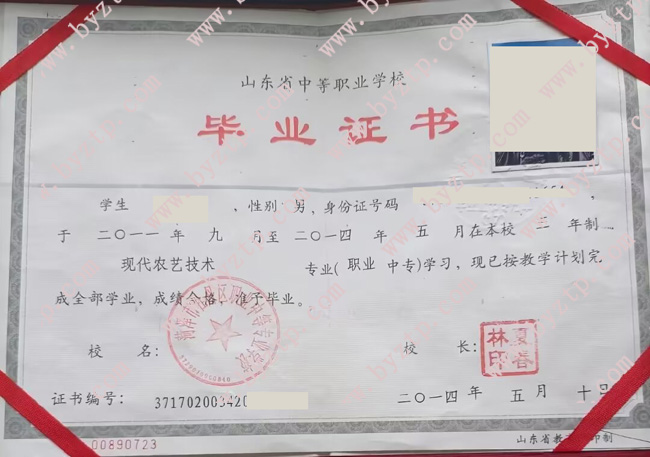 山东省中等职业学校
毕业证书
学生 、性别 男，身份证号码
于 二〇一一 年 九 月至 二〇一四 年 五 月在本校 三 年制
现代农艺技术 专业( 职业 中专)学习，现已按教学计划完
成全部学业，成绩合格，准予毕业。
校 名： 校 长：
林夏春印
证书编号： 371702003420
二〇一四 年 五 月 十 日
00890723
山东省教 印制
www.byzttp.com